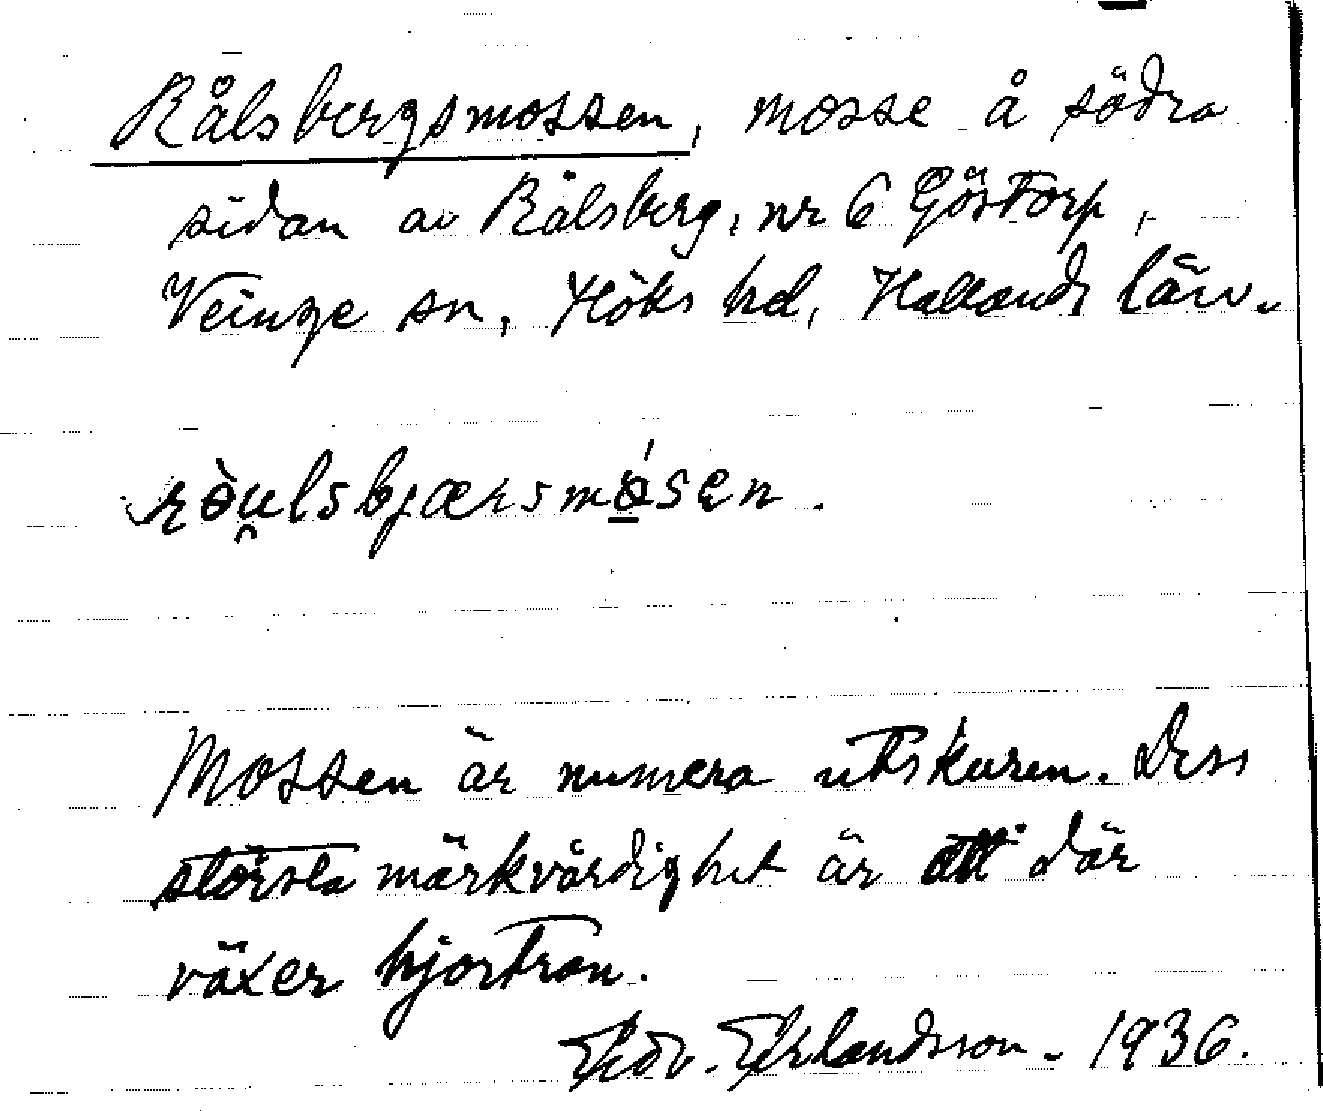 Rålsbergsmossen, mosse å södra
sidan av Rålsberg, nr 6 Göstorp,
Veinge sn, Höks hd, Hallands län.
ròu̯lsbjærsmósen.
Mossen är numera utskuren. Dess
största märkvärdighet är att där
växer hjortron.
Edv. Erlandsson. 1936.